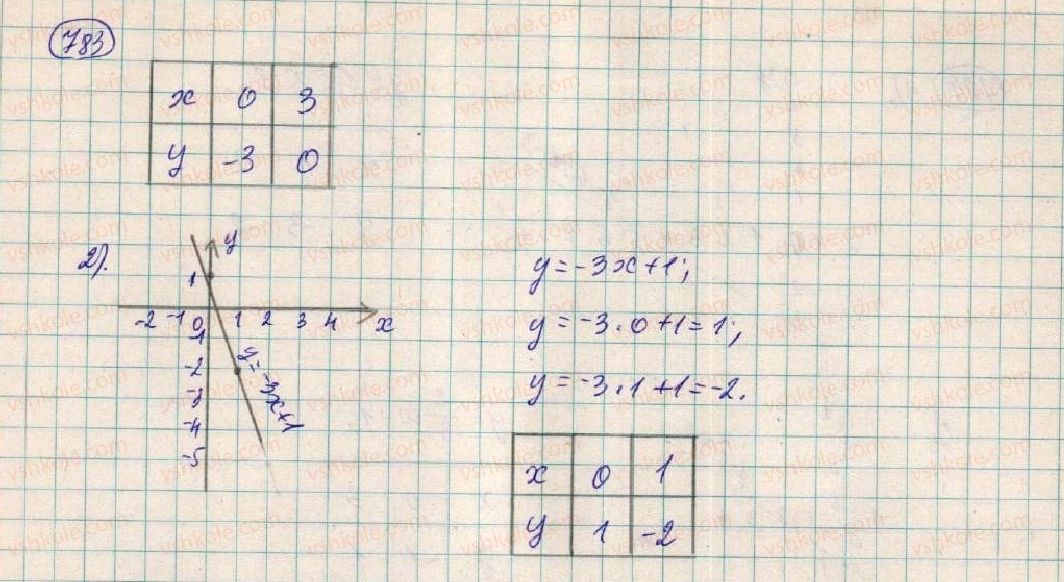 783
x 0 3
y -3 0
2).
y
1
-2 -1 0 1 2 3 4 x
-1
-2
-3
-4
-5
y=-3x+1
y = -3x+1;
y = -3·0+1=1;
y = -3·1+1=-2.
x 0 1
y 1 -2
vshkole.com